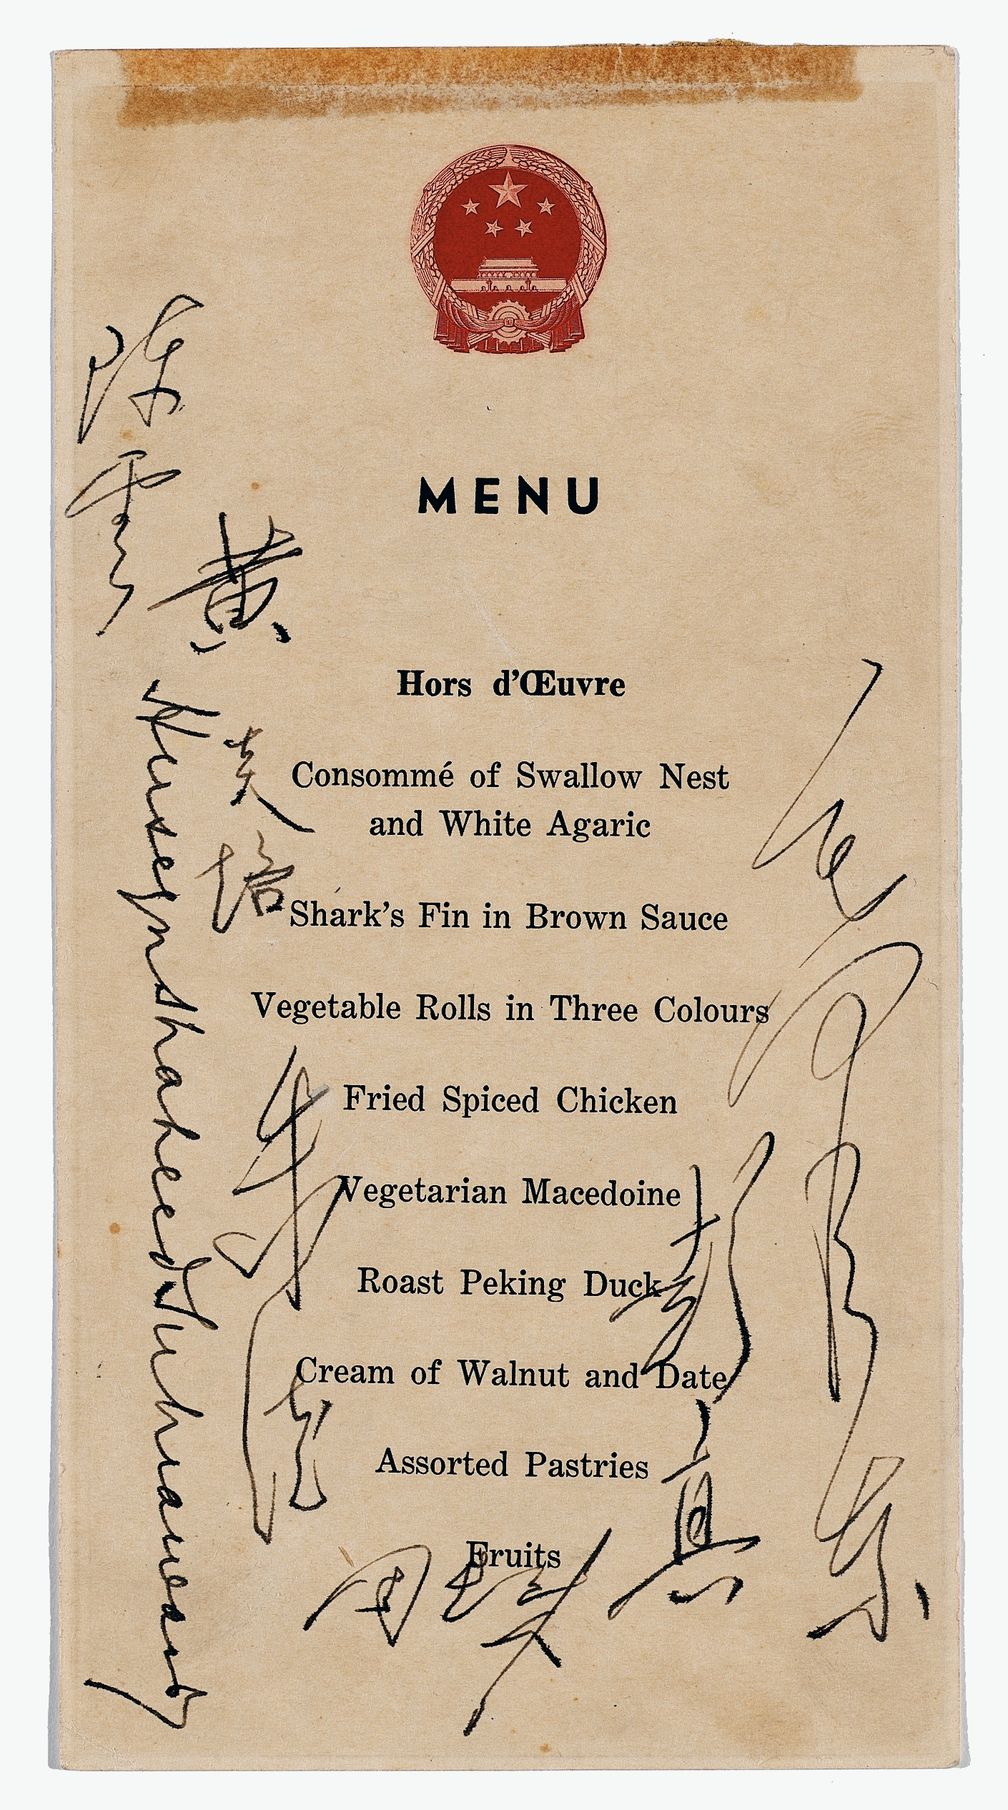 MENU
Hors d'Œuvre
Consommé of Swallow Nest
and White Agaric
Shark's Fin in Brown Sauce
Vegetable Rolls in Three Colours
Fried Spiced Chicken
Vegetarian Macedoine
Roast Peking Duck
Cream of Walnut and Date
Assorted Pastries
Fruits
陈云
黄
敬
Huseyn Shaheed Suhrawardy
彭真
周